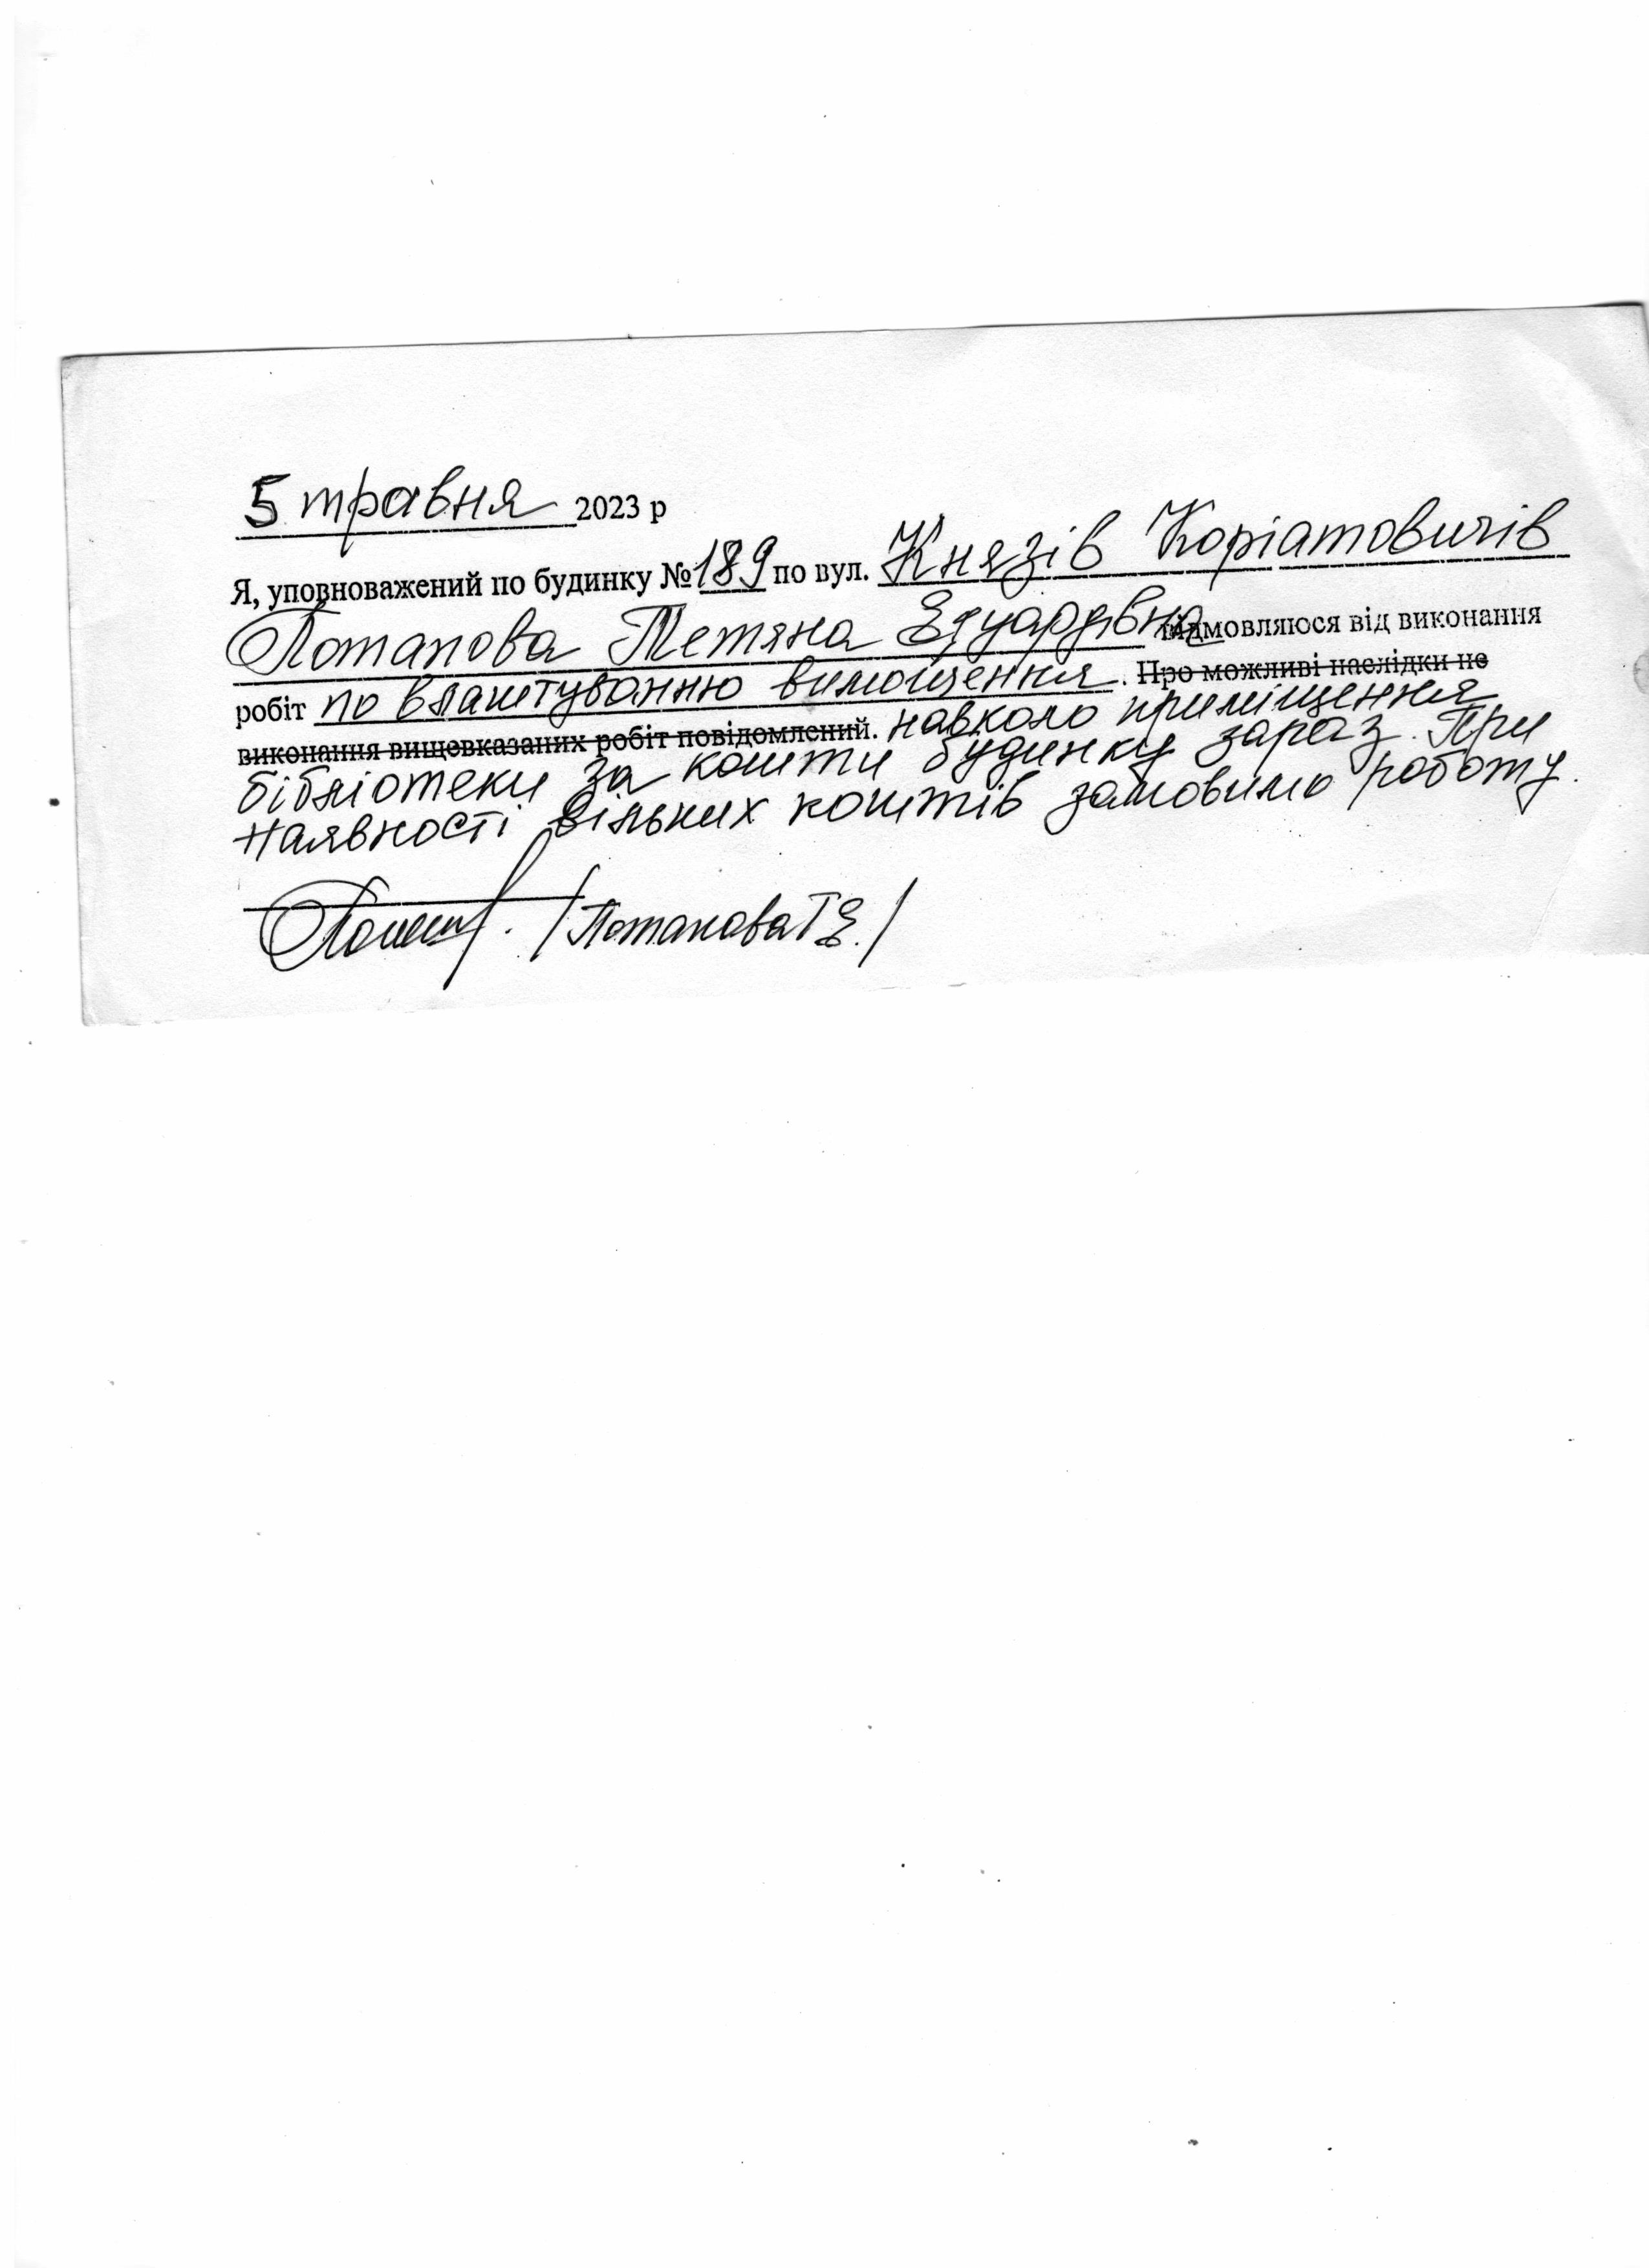 5 травня 2023 р
Я, уповноважений по будинку №189 по вул. Князів Коріатовичів
Потапова Тетяна Едуардівна відмовляюся від виконання
робіт по влаштуванню вимощення. Про можливі наслідки не
виконання вищевказаних робіт повідомлений. навколо приміщення
бібліотеки за кошти будинку зараз. При
наявності вільних коштів замовимо роботу.
/Потапова Т Е./